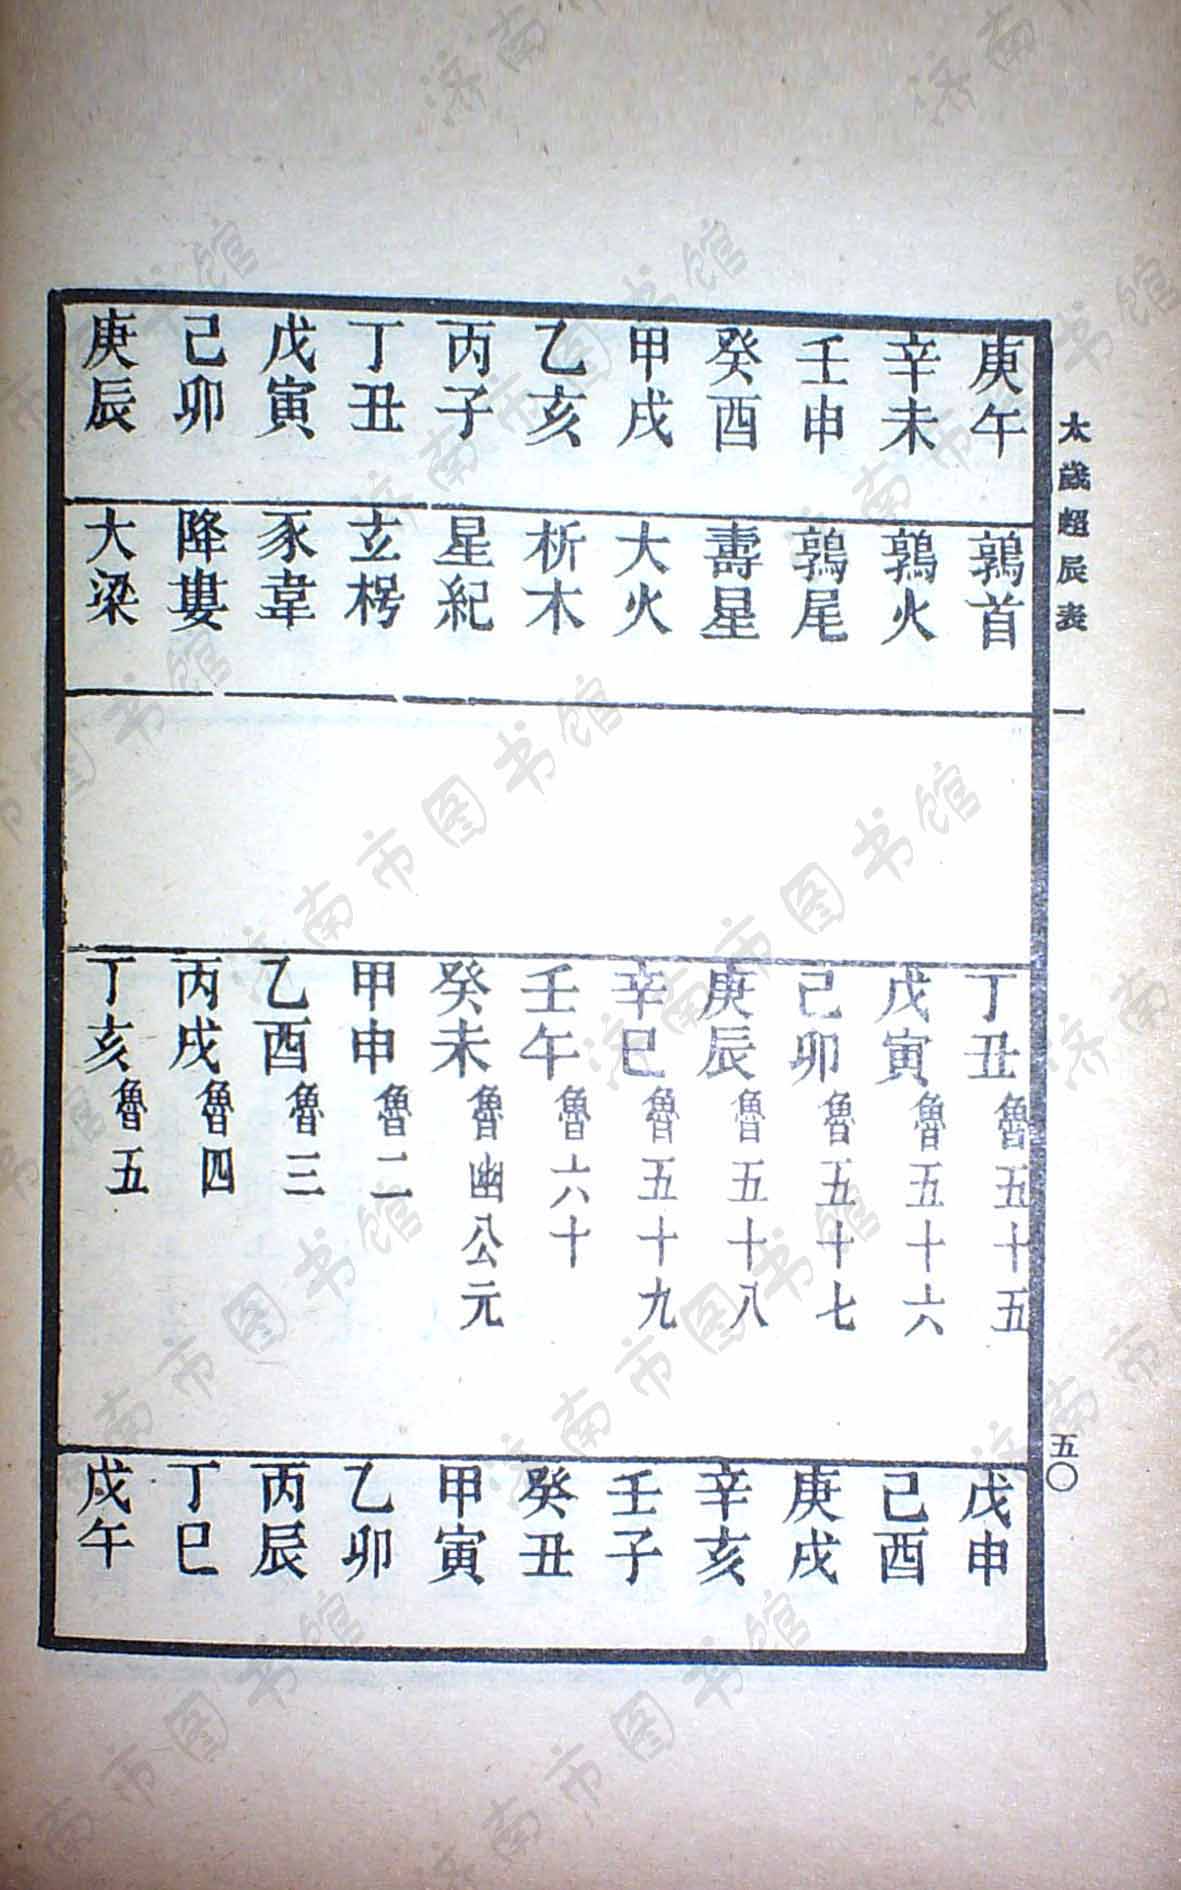 太歲超辰表 一 五〇
庚午 鶉首 丁丑 魯五十五 戊申
辛未 鶉火 戊寅 魯五十六 己酉
壬申 鶉尾 己卯 魯五十七 庚戌
癸酉 壽星 庚辰 魯五十八 辛亥
甲戌 大火 辛巳 魯五十九 壬子
乙亥 析木 壬午 魯六十 癸丑
丙子 星紀 癸未 魯幽公元 甲寅
丁丑 玄枵 甲申 魯二 乙卯
戊寅 豕韋 乙酉 魯三 丙辰
己卯 降婁 丙戌 魯四 丁巳
庚辰 大梁 丁亥 魯五 戊午
济南市图书馆